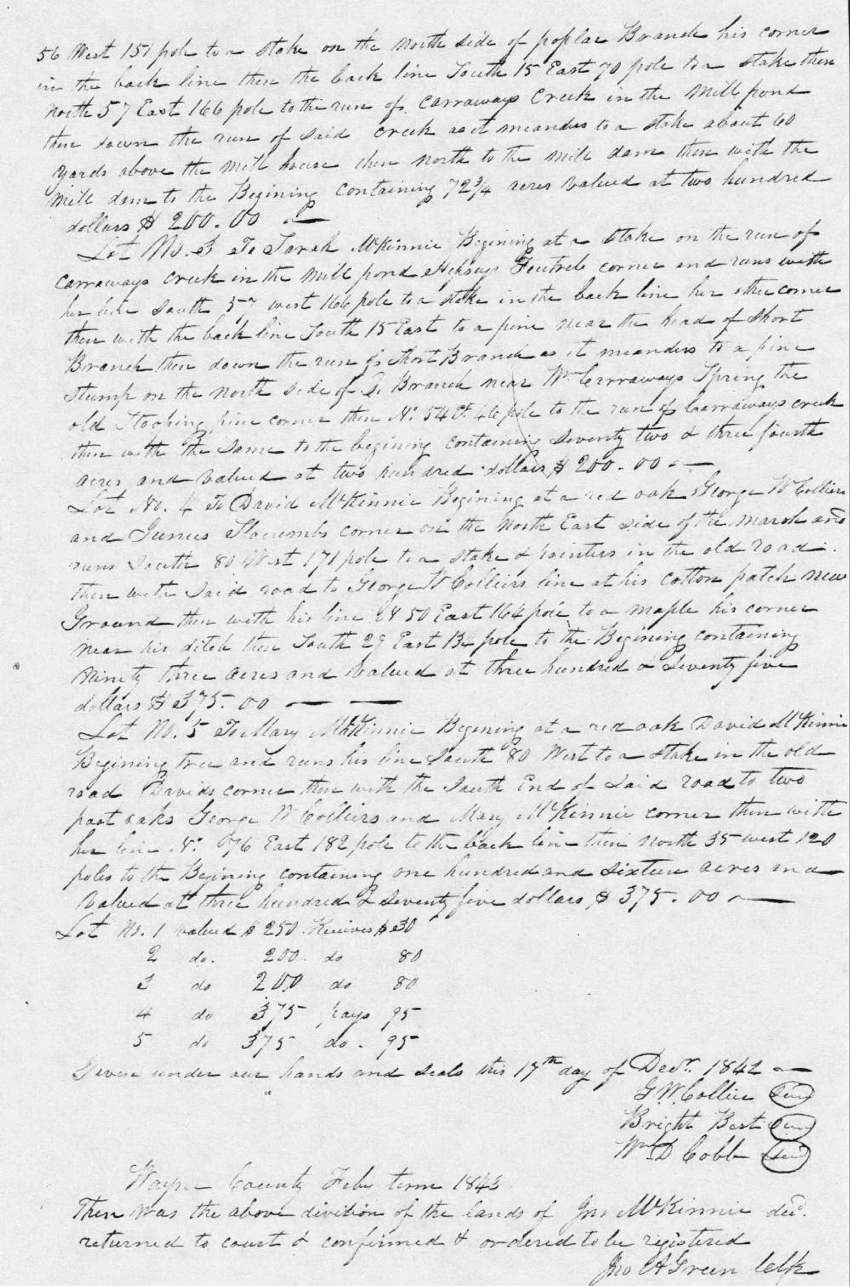 56 West 151 pole to a stake on the North side of poplar Branch his corner
in the back line then the back line South 15 East 70 pole to a stake then
North 57 East 166 pole to the run of Carraways Creek in the Mill pond
then down the run of said creek as it meanders to a stake about 60
yards above the Mill house then North to the Mill dam then with the
Mill dam to the Begining containing 72 3/4 acres valued at two hundred
dollars $ 200.00
Lot No. 3 To Sarah McKinnie Begining at a stake on the run of
Carraways creek in the Mill pond corner and runs with
her line South 57 West 166 pole to a stake in the back line her other corner
then with the back line South 15 East to a pine near the head of Short
Branch then down the run of Short Branch as it meanders to a pine
stump on the North side of Sd Branch near Wm Carraways Spring the
old pine corner then No. 54 Et. 46 pole to the run of Carraways creek
then with the same to the begining containing seventy two & three fourth
acres and valued at two hundred dollars $ 200.00
Lot No. 4 To David McKinnie Begining at a red oak George W Colliers
and Junius Slocumbs corner on the North East side of the Marsh and
runs South 80 West 171 pole to a stake & pointers in the old road
then with said road to George W Colliers line at his cotton patch new
Ground then with his line 50 East 164 pole to a maple his corner
near his ditch then South 29 East pole to the Begining containing
Ninety three acres and valued at three hundred & seventy five
dollars $ 375.00
Lot No. 5 To Mary McKinnie Begining at a red oak David McKinnie
Begining tree and runs his line South 80 West to a stake in the old
road Davids corner then with the South End of said road to two
post oaks George W Colliers and Mary McKinnie corner then with
her line No. 76 East 182 pole to the back line then North 35 west 120
poles to the Begining containing one hundred and sixteen acres and
valued at three hundred & seventy five dollars $ 375.00
Lot No. 1 valued $ 250 Receives $ 30
2 do. 200 do 80
3 do 200 do 80
4 do 375 pays 95
5 do 375 do. 95
Given under our hands and seals this 17th day of Decr. 1842
G. W. Collier seal
Bright Best seal
Wm D Cobb seal
Wayne County Feb. term 1843
Then was the above division of the lands of Jno McKinnie decd.
returned to court & confirmed & ordered to be registered
Jno A Green Clk